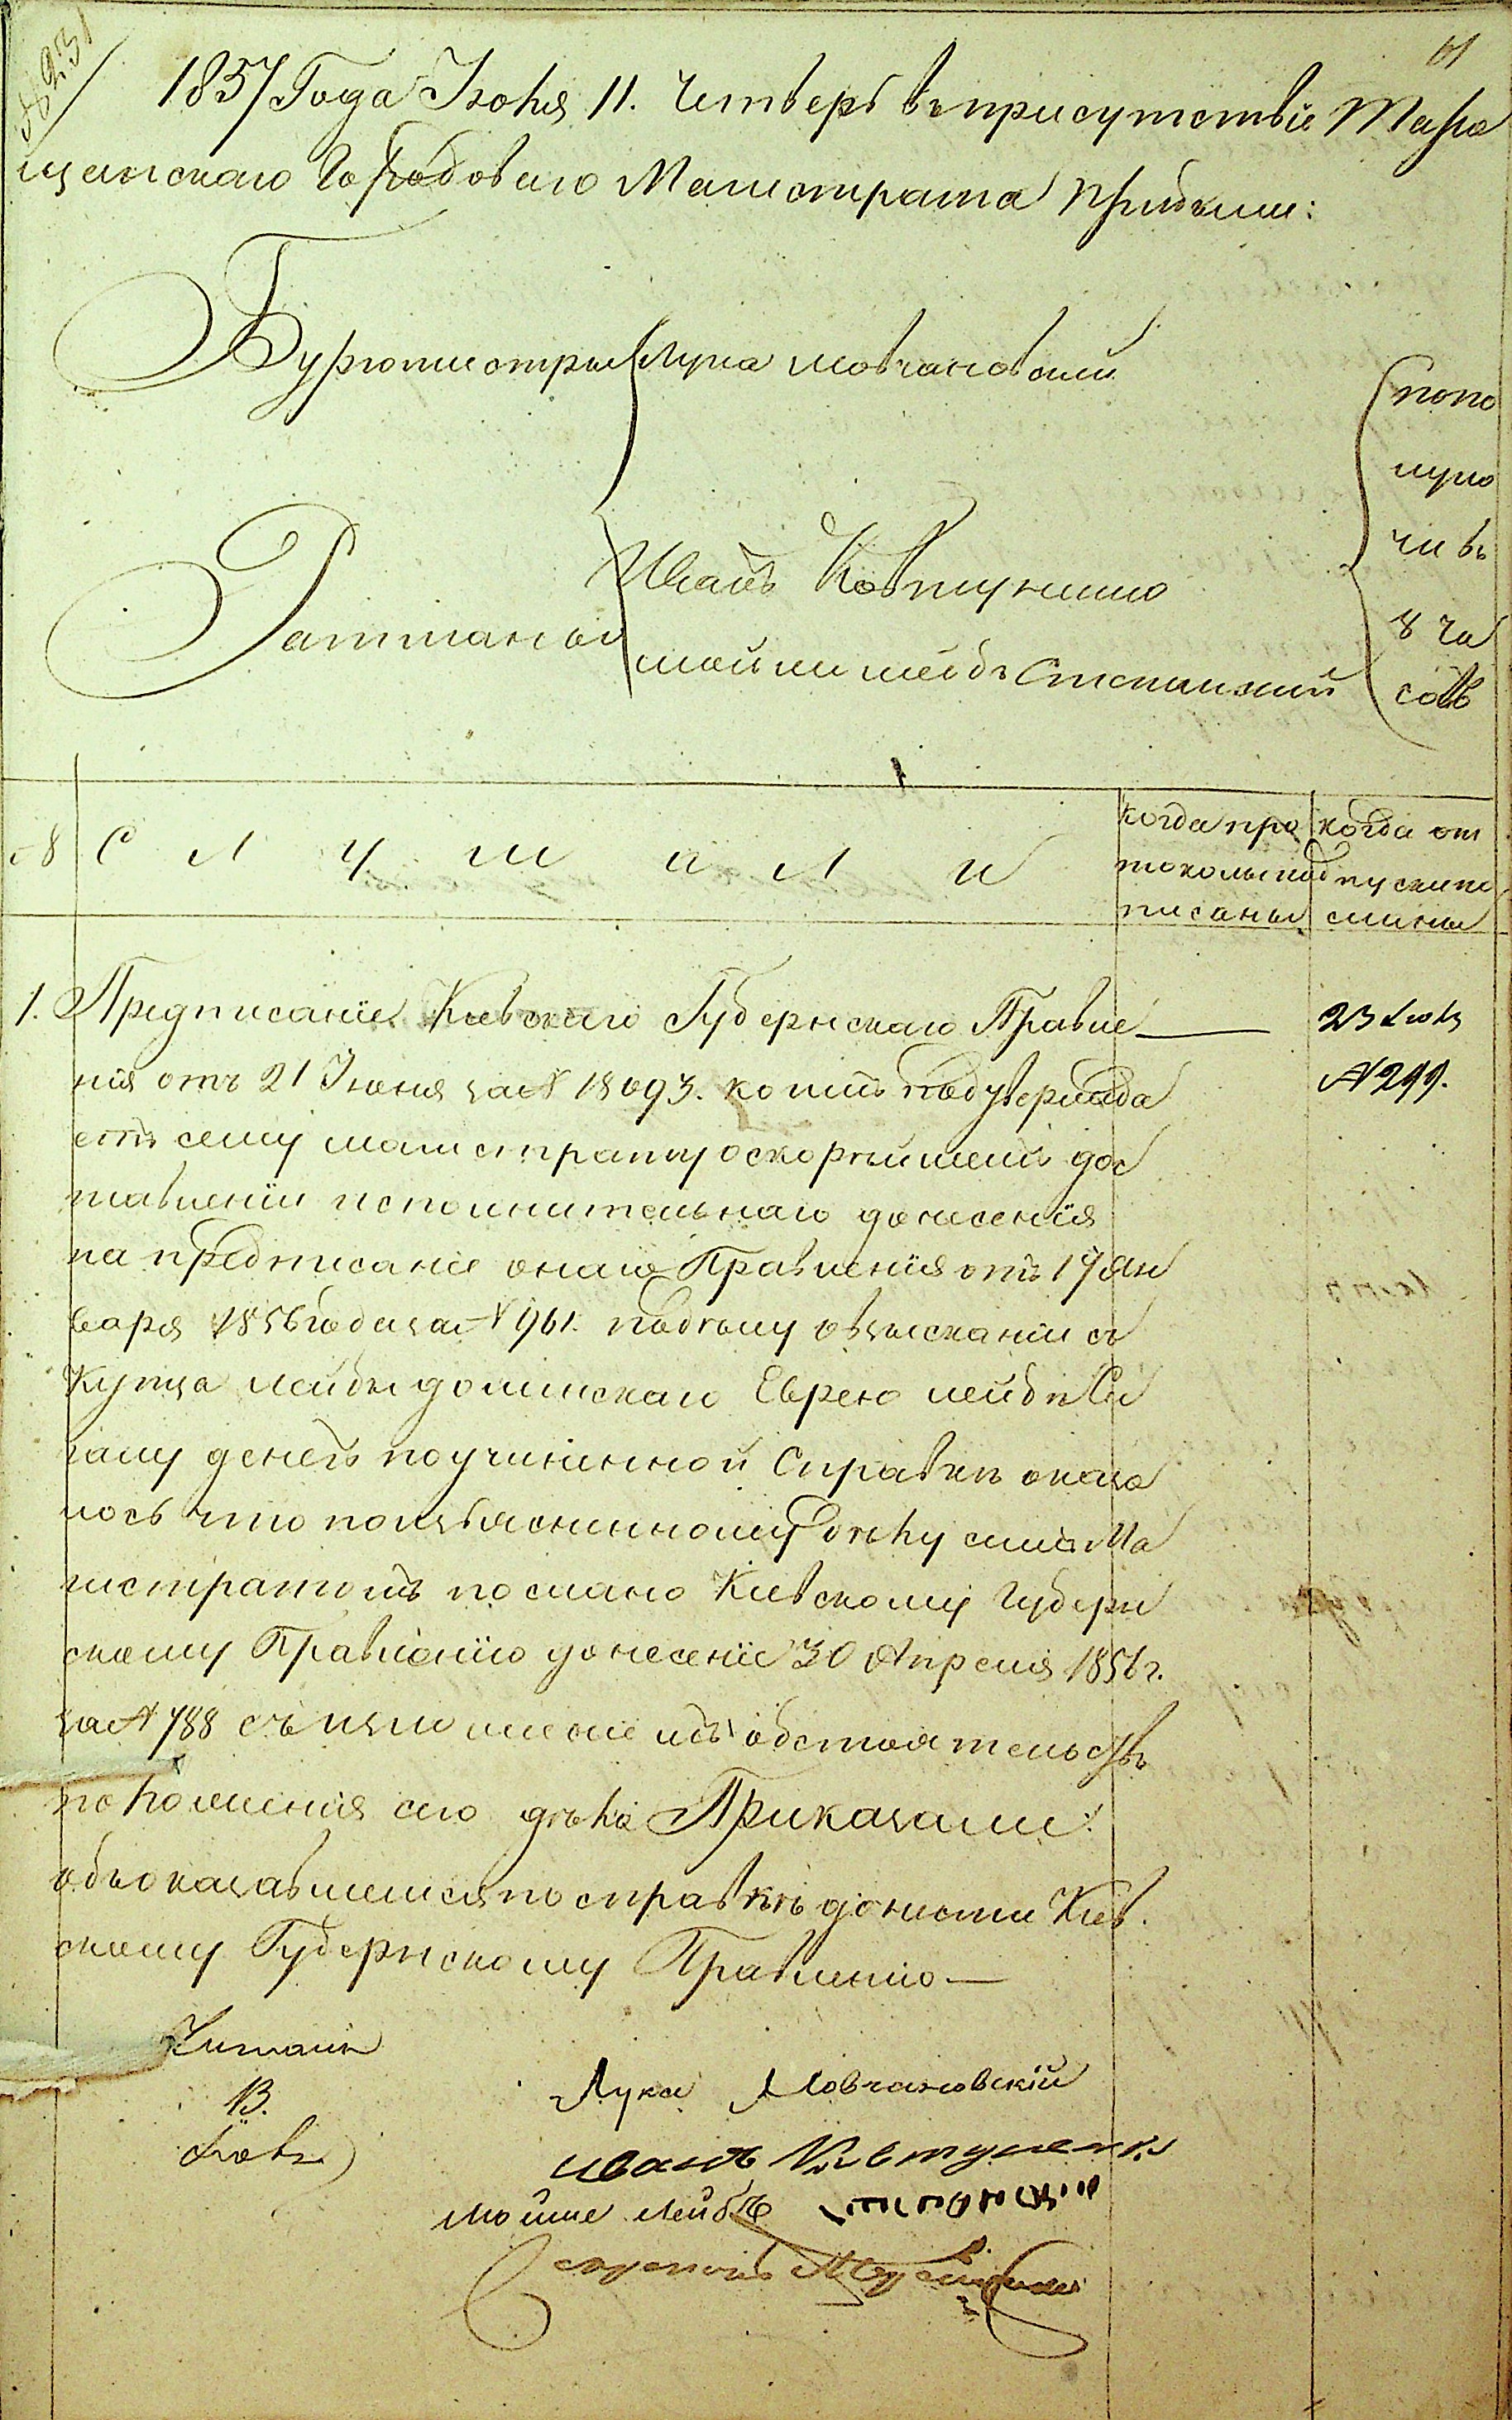 1857 Года Июля 11. Четверг въ присутствіе Тара
щанскаго Городоваго Магистрата Прибыли:
Бургомистры Лука Мовчановский
по по
луно
чи въ
8 ча
совъ
Ратманы
Иванъ Ковтуненко
Мошко Лейба
№ С л у ш а л и
когда про
токолы под
писаны
когда от
пуск
1. Предписаніе Кіевскаго Губернскаго Правле
нія отъ 21 Іюня за № 18093. коимъ подтвержда
етъ сему магистрату о скорѣйшемъ дос
тавленіи исполнительнаго донесенія
на предписаніе онаго Правленія отъ 17 Ян
варя 1856 года за № 961. по дѣлу о взысканіи съ
Купца Лейбы Еврею Лейбѣ
денегъ по учиненной Справкѣ оказа
лось что по изъясненному дѣлу симъ Ма
гистратомъ послано Кіевскому Губерн
скому Правленію донесеніе 30 Апреля 1856 г.
за № 788 съ обстоятельствъ
сего дѣла Приказали:
объ оказавшемся по справкѣ донести Кіев.
скому Губернскому Правленію —
23 Іюля
№ 299.
Читалъ
Лука Мовчановскій
Иванъ Ковтуненко
Мошко Лейба